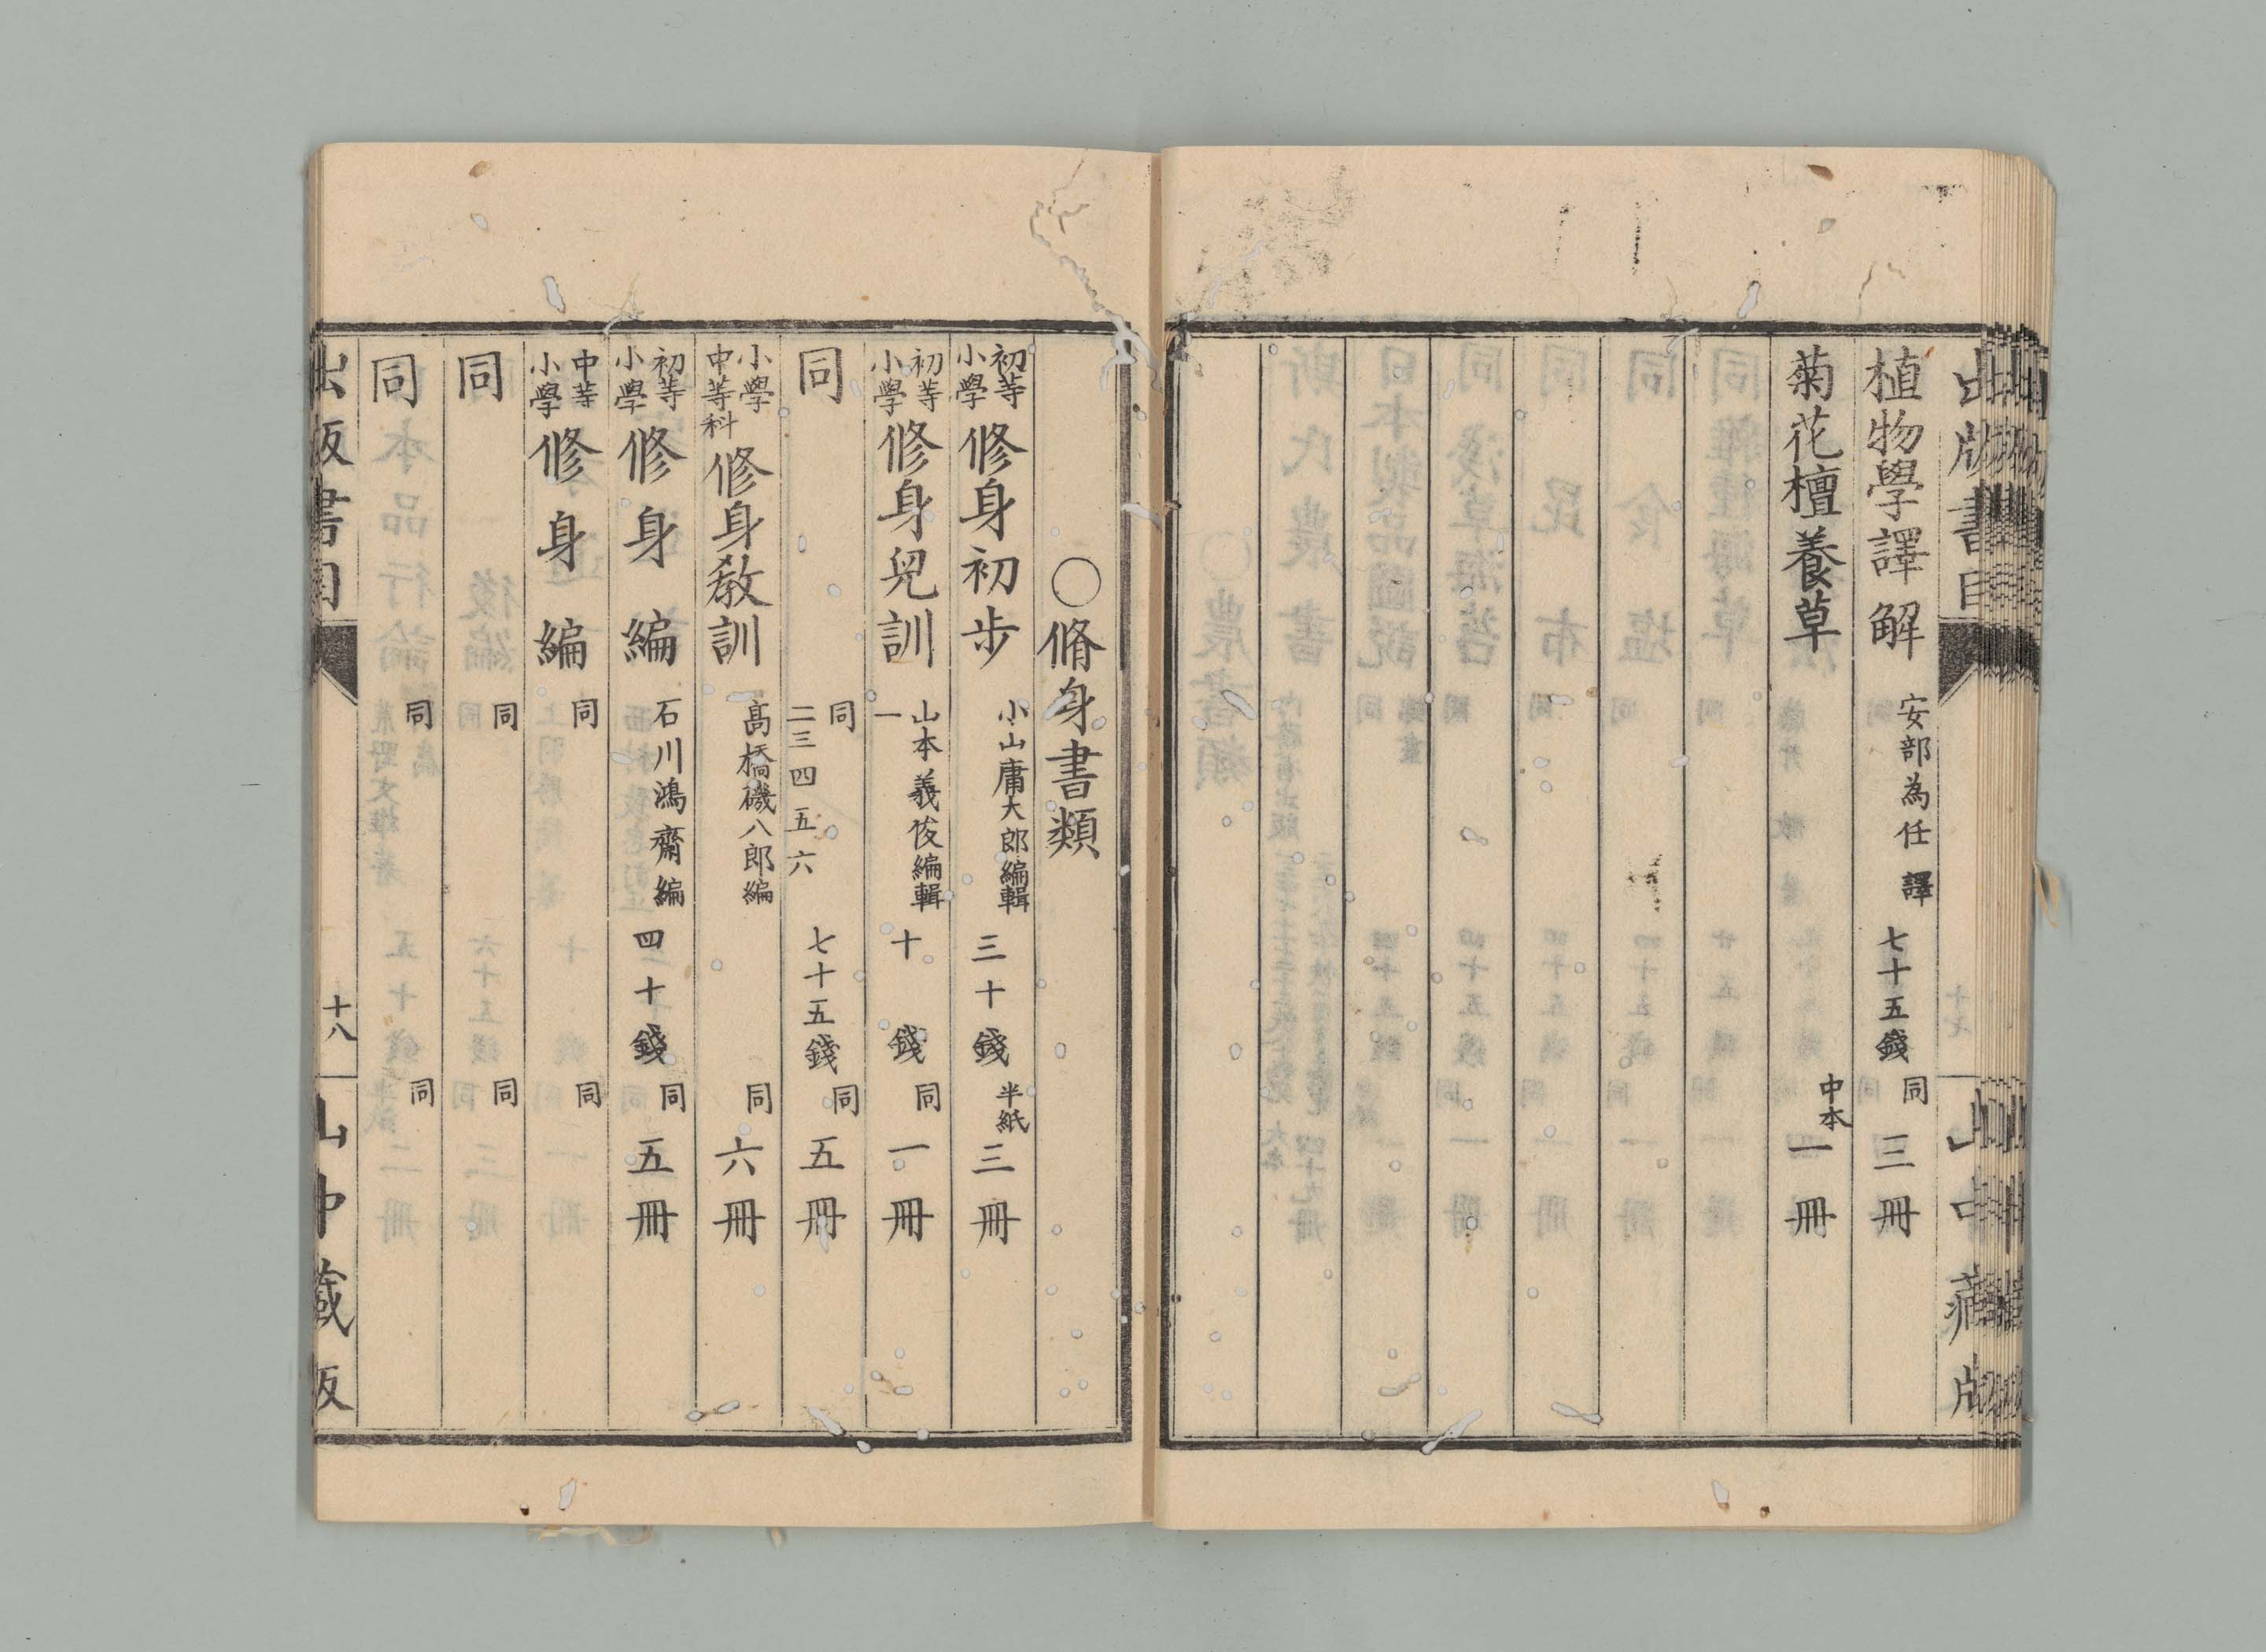 出版書目
山中藏版
植物學譯解 安部為任 譯 七十五錢 同 三冊
菊花檀養草 中本 一冊
〇脩身書類
初等小學 修身初步 小山庸大郎編輯 三十錢 半紙 三冊
初等小學 修身兒訓 一 山本義俊編輯 十錢 同 一冊
同 二三四五六 同 七十五錢 同 五冊
小學中等科 修身教訓 高橋磯八郎編 同 六冊
初等小學 修身編 石川鴻齋編 四十錢 同 五冊
中等小學 修身編 同 同
同 同 同
同 同 同
出版書目 十八 山中藏版